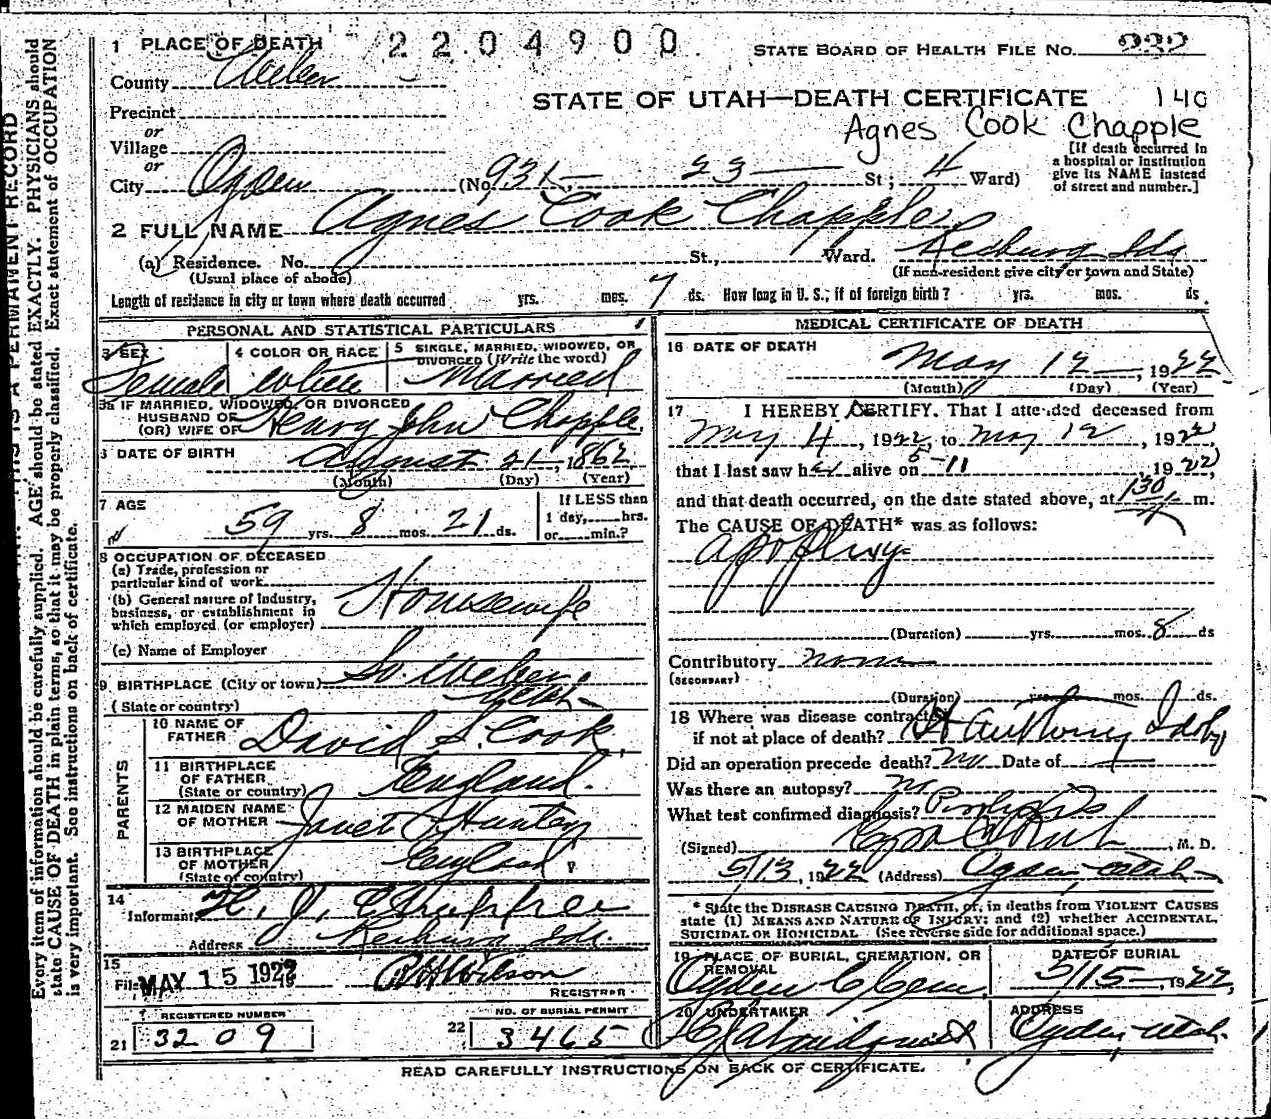 1 PLACE OF DEATH 2204900 STATE BOARD OF HEALTH FILE No. 
County Weber
STATE OF UTAH—DEATH CERTIFICATE 140
Precinct
or
Agnes Cook Chapple
Village
or
[If death occurred in a hospital or institution give its NAME instead of street and number.]
City Ogden (No. 931 — 23 — St; 4 Ward)
2 FULL NAME Agnes Cook Chapple
(a) Residence. No. St., Ward. Rexburg Ida
(Usual place of abode) (If non-resident give city or town and State)
Length of residence in city or town where death occurred yrs. mos. 7 ds. How long in U. S.; if of foreign birth? yrs. mos. ds.
PERSONAL AND STATISTICAL PARTICULARS
3 SEX 4 COLOR OR RACE 5 SINGLE, MARRIED, WIDOWED, OR DIVORCED (Write the word)
Female white Married
5a IF MARRIED, WIDOWED, OR DIVORCED
HUSBAND OF
(OR) WIFE OF Henry John Chapple
6 DATE OF BIRTH August 21, 1862
(Month) (Day) (Year)
7 AGE 59 yrs. 8 mos. 21 ds.
If LESS than
1 day, hrs.
or min.?
8 OCCUPATION OF DECEASED
(a) Trade, profession or
particular kind of work
(b) General nature of Industry,
business, or establishment in
which employed (or employer) Housewife
(c) Name of Employer
9 BIRTHPLACE (City or town) So. Weber
(State or country) Utah
PARENTS
10 NAME OF
FATHER David S. Cook
11 BIRTHPLACE
OF FATHER
(State or country) England.
12 MAIDEN NAME
OF MOTHER Janet Hunter
13 BIRTHPLACE
OF MOTHER
(State or country) England
14
Informant H. J. Chapple
Address Rexburg Ida.
15
Filed MAY 15 1922 Wilson
REGISTRAR
REGISTERED NUMBER NO. OF BURIAL PERMIT
21 3209 22 3465
MEDICAL CERTIFICATE OF DEATH
16 DATE OF DEATH
May 12, 1922
(Month) (Day) (Year)
17 I HEREBY CERTIFY. That I attended deceased from
May 4, 1922, to May 12, 1922,
that I last saw her alive on 5-11 1922,
and that death occurred, on the date stated above, at 130 m.
The CAUSE OF DEATH* was as follows:
Apoplexy
(Duration) yrs. mos. 8 ds
Contributory none
(SECONDARY)
(Duration) yrs. mos. ds.
18 Where was disease contracted
if not at place of death? St Anthony Idaho
Did an operation precede death? No Date of
Was there an autopsy? no
What test confirmed diagnosis?
(Signed) , M. D.
5/13, 1922 (Address) Ogden, Utah
* State the DISEASE CAUSING DEATH, or, in deaths from VIOLENT CAUSES
state (1) MEANS AND NATURE OF INJURY; and (2) whether ACCIDENTAL,
SUICIDAL OR HOMICIDAL (See reverse side for additional space.)
19 PLACE OF BURIAL, CREMATION, OR
REMOVAL
Ogden C Cem,
DATE OF BURIAL
5/15, 1922,
20 UNDERTAKER
ADDRESS
Ogden, Utah.
READ CAREFULLY INSTRUCTIONS ON BACK OF CERTIFICATE.
IS A PERMANENT RECORD
Every item of information should be carefully supplied. AGE should be stated EXACTLY. PHYSICIANS should
state CAUSE OF DEATH in plain terms, so that it may be properly classified. Exact statement of OCCUPATION
is very important. See instructions on back of certificate.